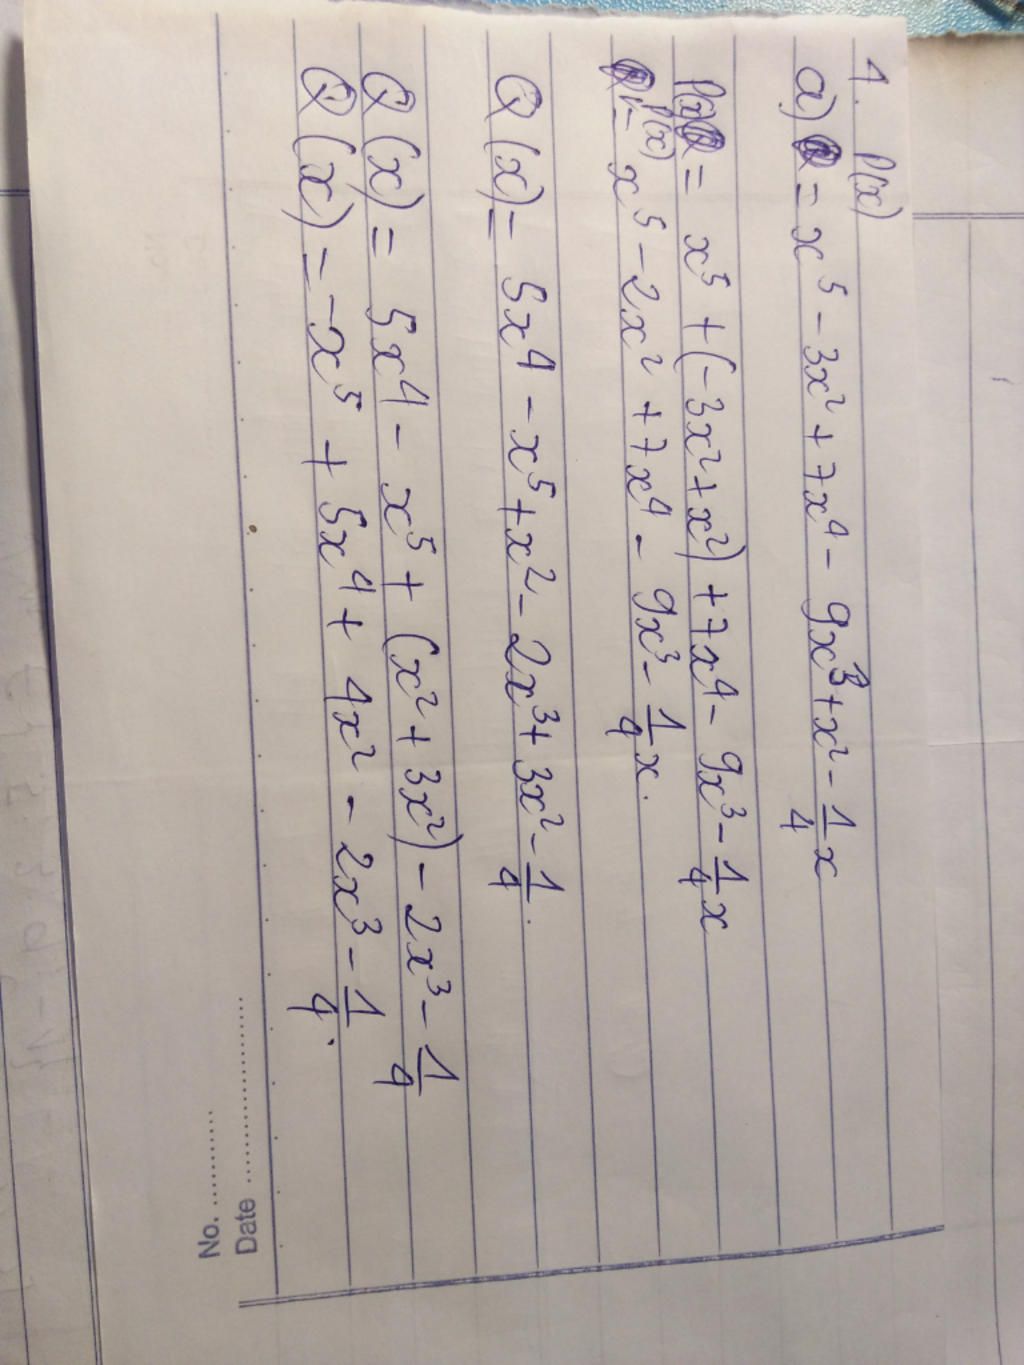 No. ............
Date ........................
1. P(x)
a) = x⁵ - 3x² + 7x⁴ - 9x³ + x² - 1/4 x
P(x) = x⁵ + (-3x² + x²) + 7x⁴ - 9x³ - 1/4 x
P(x) = x⁵ - 2x² + 7x⁴ - 9x³ - 1/4 x.
Q(x) = 5x⁴ - x⁵ + x² - 2x³ + 3x² - 1/4.
Q(x) = 5x⁴ - x⁵ + (x² + 3x²) - 2x³ - 1/4
Q(x) = -x⁵ + 5x⁴ + 4x² - 2x³ - 1/4.